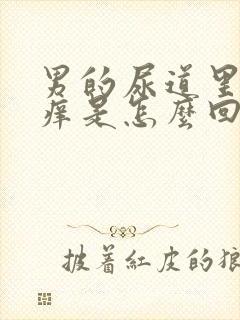 男的尿道里
痒是怎麼回
披着紅皮的狼